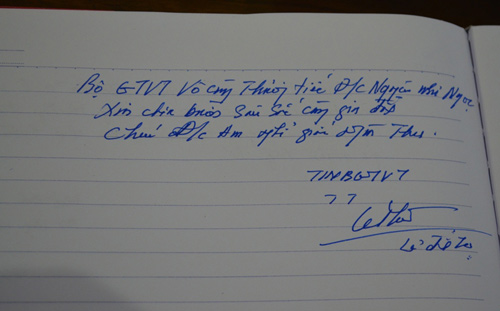 Bộ GTVT Vô cùng Thương tiếc Đ/c Nguyễn Như Ngọc
Xin chia buồn Sâu Sắc cùng gia đình
Chúc Đ/c An nghỉ giấc
TM BGTVT